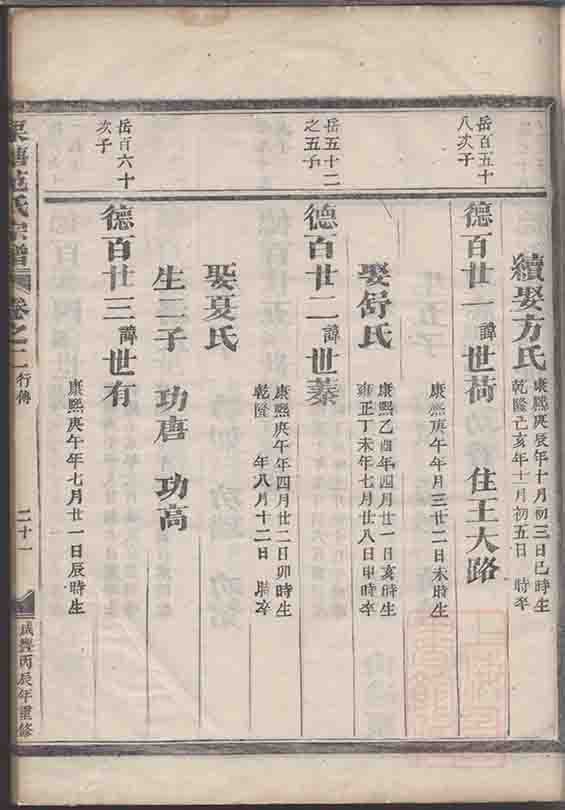 續娶方氏
康熙庚辰年十月初三日巳時生
乾隆己亥年十一月初五日 時卒
岳百五十
八次子
德百廿一諱世荷 住王大路
康熙庚午年月三廿二日未時生
娶舒氏
康熙乙酉年四月廿一日亥時生
雍正丁未年七月廿八日申時卒
岳五十二
之五子
德百廿二諱世蓁
康熙庚午年四月廿二日卯時生
乾隆 年八月十二日 時卒
娶夏氏
生二子 功唐 功高
岳百六十
次子
德百廿三諱世有
康熙庚午年七月廿一日辰時生
范氏宗譜 卷之二 行傳 二十一 咸豐丙辰年重修